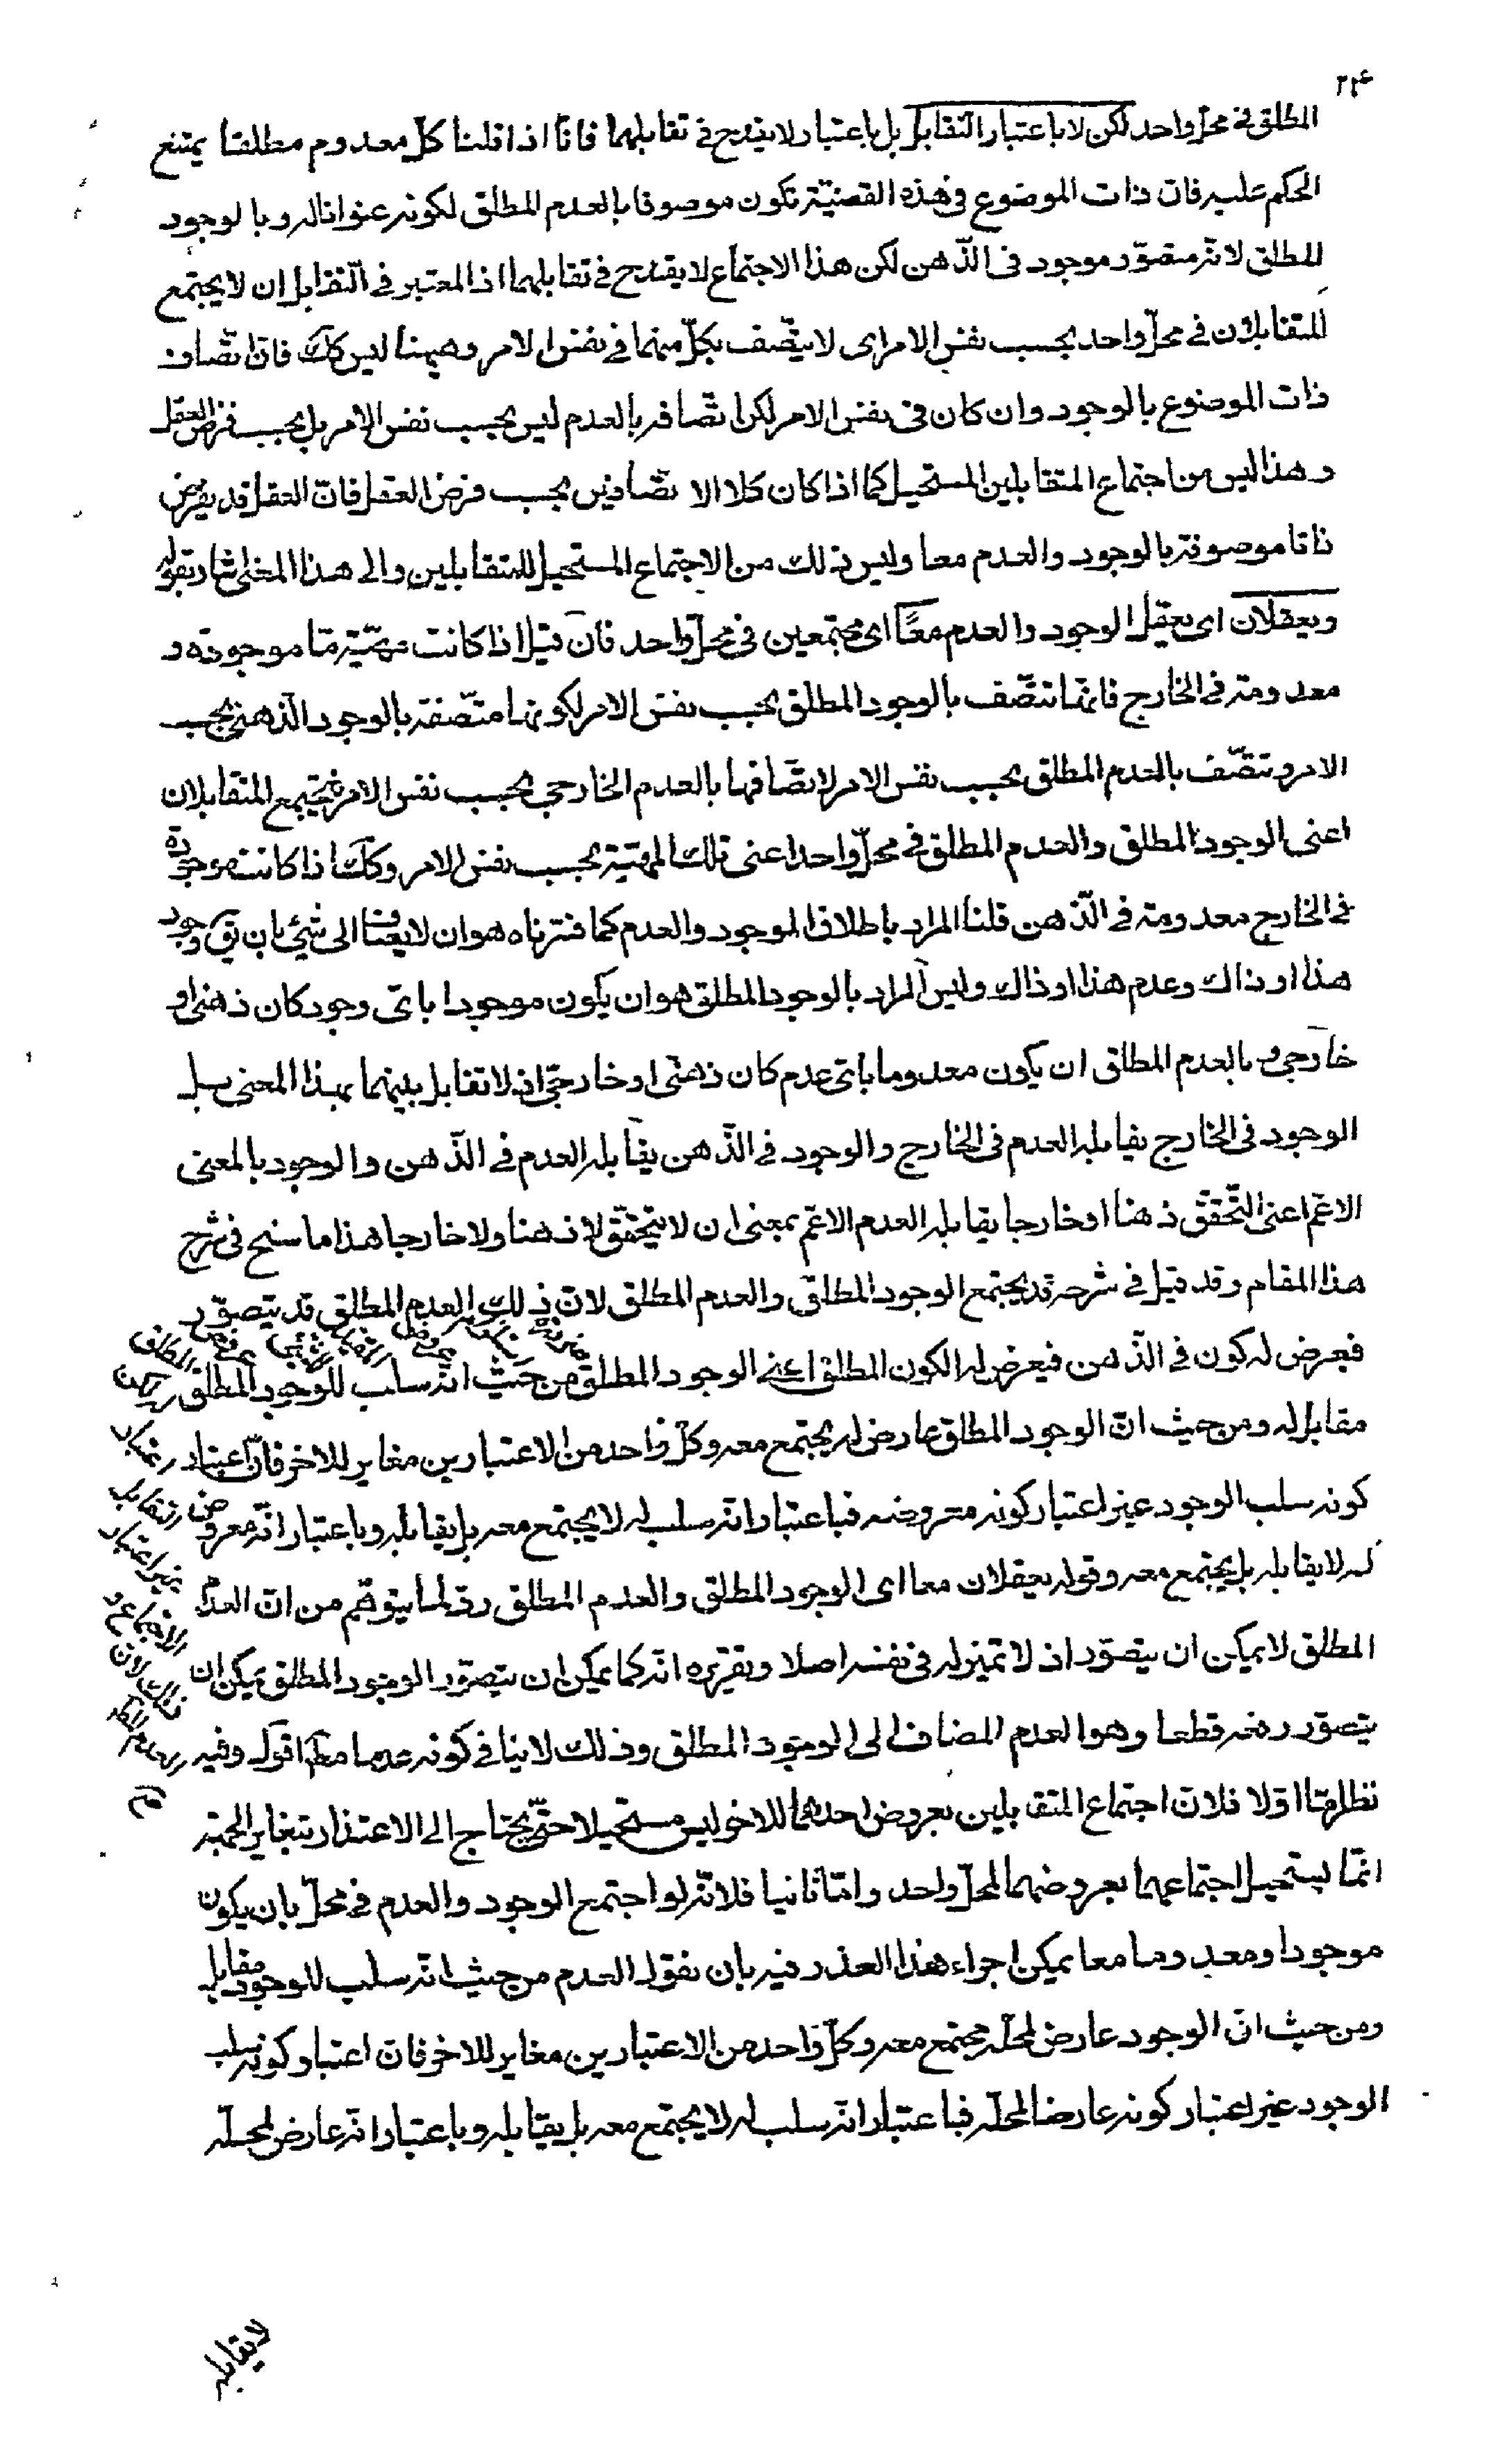 ۲۴
المطلق فى محل واحد لكن لا باعتبار التقابل بل باعتبار لا يقدح فى تقابلهما فانا اذا قلنا كل معدوم مطلقا يمتنع
الحكم عليه فان ذات الموضوع فى هذه القضية تكون موصوفا بالعدم المطلق لكونه عنوانا له و بالوجود
المطلق لانه متصور موجود فى الذهن لكن هذا الاجتماع لا يقدح فى تقابلهما اذ المعتبر فى التقابل ان لا يجتمع
المتقابلان فى محل واحد بحسب نفس الامر اى لا يتصف بكل منهما فى نفس الامر وههنا ليس كك فان اتصاف
ذات الموضوع بالوجود وان كان فى نفس الامر لكن اتصافه بالعدم ليس بحسب نفس الامر بل بحسب فرض العقل
و هذا ليس من اجتماع المتقابلين المستحيل كما اذا كان كلا الاتصافين بحسب فرض العقل فان العقل قد يفرض
ذاتا موصوفة بالوجود والعدم معا وليس ذلك من الاجتماع المستحيل للمتقابلين والى هذا المعنى اشار بقوله
ويعقلان اى يعقل الوجود والعدم معا اى مجتمعين فى محل واحد فان قيل اذا كانت مهية ما موجودة و
معدومة فى الخارج فانها تتصف بالوجود المطلق بحسب نفس الامر لكونها متصفة بالوجود الذهنى بحسب
الامر و تتصف بالعدم المطلق بحسب نفس الامر لاتصافها بالعدم الخارجى بحسب نفس الامر فيجتمع المتقابلان
اعنى الوجود المطلق والعدم المطلق فى محل واحد اعنى تلك المهية بحسب نفس الامر وكك اذا كانت موجودة
فى الخارج معدومة فى الذهن قلنا المراد باطلاق الوجود والعدم كما فسرناه هو ان لا يضافا الى شئ بان يق وجود
هذا او ذاك وعدم هذا او ذاك وليس المراد بالوجود المطلق هو ان يكون موجودا باى وجود كان ذهنى او
خارجى و بالعدم المطلق ان يكون معدوما باى عدم كان ذهنى او خارجى اذ لا تقابل بينهما بهذا المعنى بل
الوجود فى الخارج يقابله العدم فى الخارج والوجود فى الذهن يقابله العدم فى الذهن والوجود بالمعنى
الاعم اعنى التحقق ذهنا او خارجا يقابله العدم الاعم بمعنى ان لا يتحقق لا ذهنا ولا خارجا هذا ما سنح فى شرح
هذا المقام وقد قيل فى شرحه قد يجتمع الوجود المطلق والعدم المطلق لان ذلك العدم المطلق قد يتصور
فيعرض له كون فى الذهن فيعرض له الكون المطلق اعنى الوجود المطلق من حيث انه سلب للوجود المطلق
مقابل له ومن حيث ان الوجود المطلق عارض له يجتمع معه وكل واحد من الاعتبارين مغاير للاخر فان اعتبار
كونه سلب الوجود غير اعتبار كونه معروضه فباعتبار انه سلب له لا يجتمع معه بل يقابله وباعتبار انه معروض
له لا يقابله بل يجتمع معه وقوله يعقلان معا اى الوجود المطلق والعدم المطلق رد لما يتوهم من ان العدم
المطلق لا يمكن ان يتصور اذ لا تميز له فى نفسه اصلا وتقريره انه كما يمكن ان يتصور الوجود المطلق يمكن ان
يتصور رفعه قطعا وهو العدم المضاف الى الوجود المطلق وذلك لا ينافى كونه عدما مطلقا اقول وفيه
نظر اما اولا فلان اجتماع المتقابلين بعروض احدهما للاخر ليس مستحيلا حتى يحتاج الى الاعتذار بتغاير الجهة
انما يستحيل اجتماعهما بعروضهما لمحل واحد واما ثانيا فلانه لو اجتمع الوجود والعدم فى محل بان يكون
موجودا ومعدوما معا يمكن اجراء هذا العذر فيه بان نقول العدم من حيث انه سلب للوجود مقابل
ومن حيث ان الوجود عارض لمحله مجتمع معه وكل واحد من الاعتبارين مغاير للاخر فان اعتبار كونه سلب
الوجود غير اعتبار كونه عارضا لمحله فباعتبار انه سلب له لا يجتمع معه بل يقابله وباعتبار انه عارض لمحله
لا يقابله